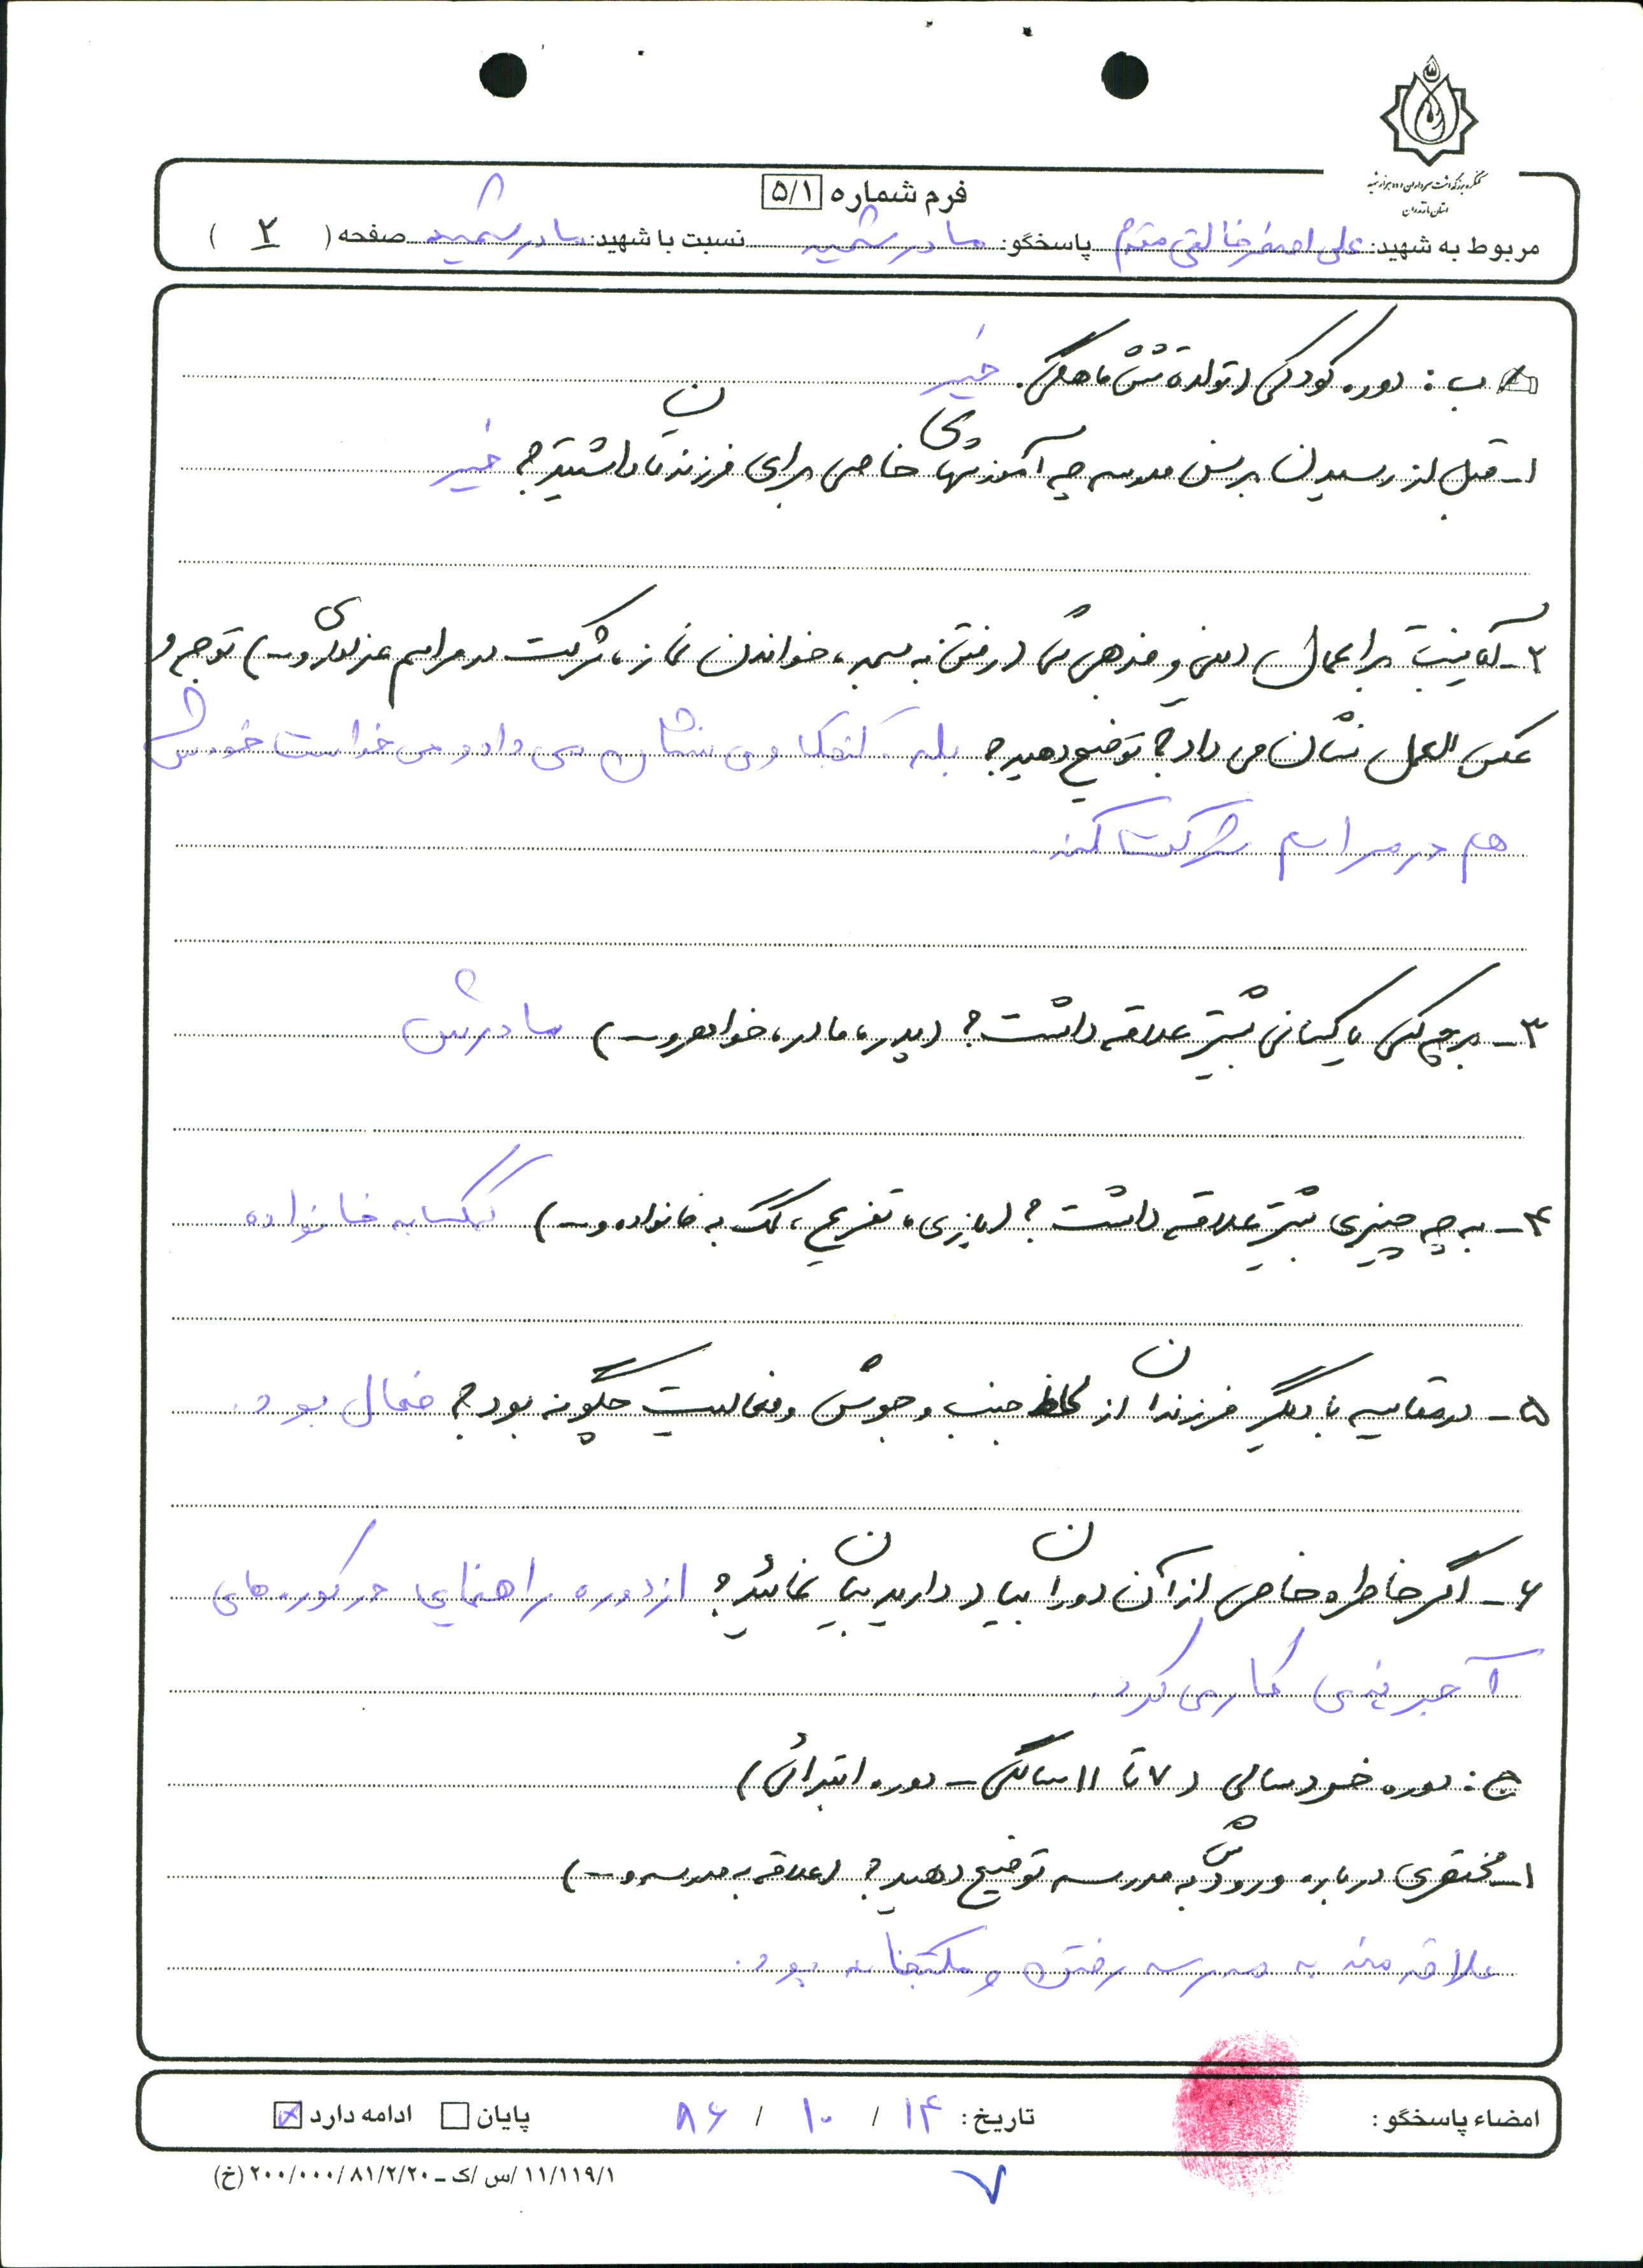 کنگره بزرگداشت سرداران و ده هزار شهید
استان مازندران
فرم شماره ۵/۱
مربوط به شهید: علی اصغر خالقی مقدم پاسخگو: مادر شهید نسبت با شهید: مادر شهید صفحه ( ۲ )
ب: دوره کودکی (تولد تا شش ماهگی. خیر
۱- قبل از رسیدن به سن مدرسه چه آموزشهای خاصی برای فرزندتان داشتید؟ خیر
۲- آیا نسبت به اعمال دینی و مذهبی شما (رفتن به مسجد، خواندن نماز، شرکت در مراسم عزاداری و ...) توجه و
عکس العمل نشان می داد؟ توضیح دهید؟ بله. کنجکاوی نشان می داد و می خواست خودش
هم در مراسم شرکت کند.
۳- به چه کس یا کسانی بیشتر علاقه داشت؟ (پدر، مادر، خواهر و ...) مادرش
۴- به چه چیزی بیشتر علاقه داشت؟ (بازی، تفریح، کمک به خانواده و ...) کمک به خانواده
۵- در مقایسه با دیگر فرزندان از لحاظ جنب و جوش و فعالیت چگونه بود؟ فعال بود.
۶- اگر خاطره خاصی از آن دوران بیاد دارید بیان نمائید؟ از دوره راهنمایی در کوره های
آجرپزی کار می کرد.
ج: دوره خردسالی (۷ تا ۱۱ سالگی - دوره ابتدائی)
۱- مختصری درباره ورودش به مدرسه توضیح دهید؟ (علاقه به مدرسه و ...)
علاقه مند به مدرسه رفتن و مکتبخانه بود.
امضاء پاسخگو: تاریخ: ۱۴ / ۱۰ / ۸۶ پایان ادامه دارد
۱۱/۱۱۹/۱ /س /ک - ۲۰۰/۰۰۰/۸۱/۲/۲۰ (خ)
۷